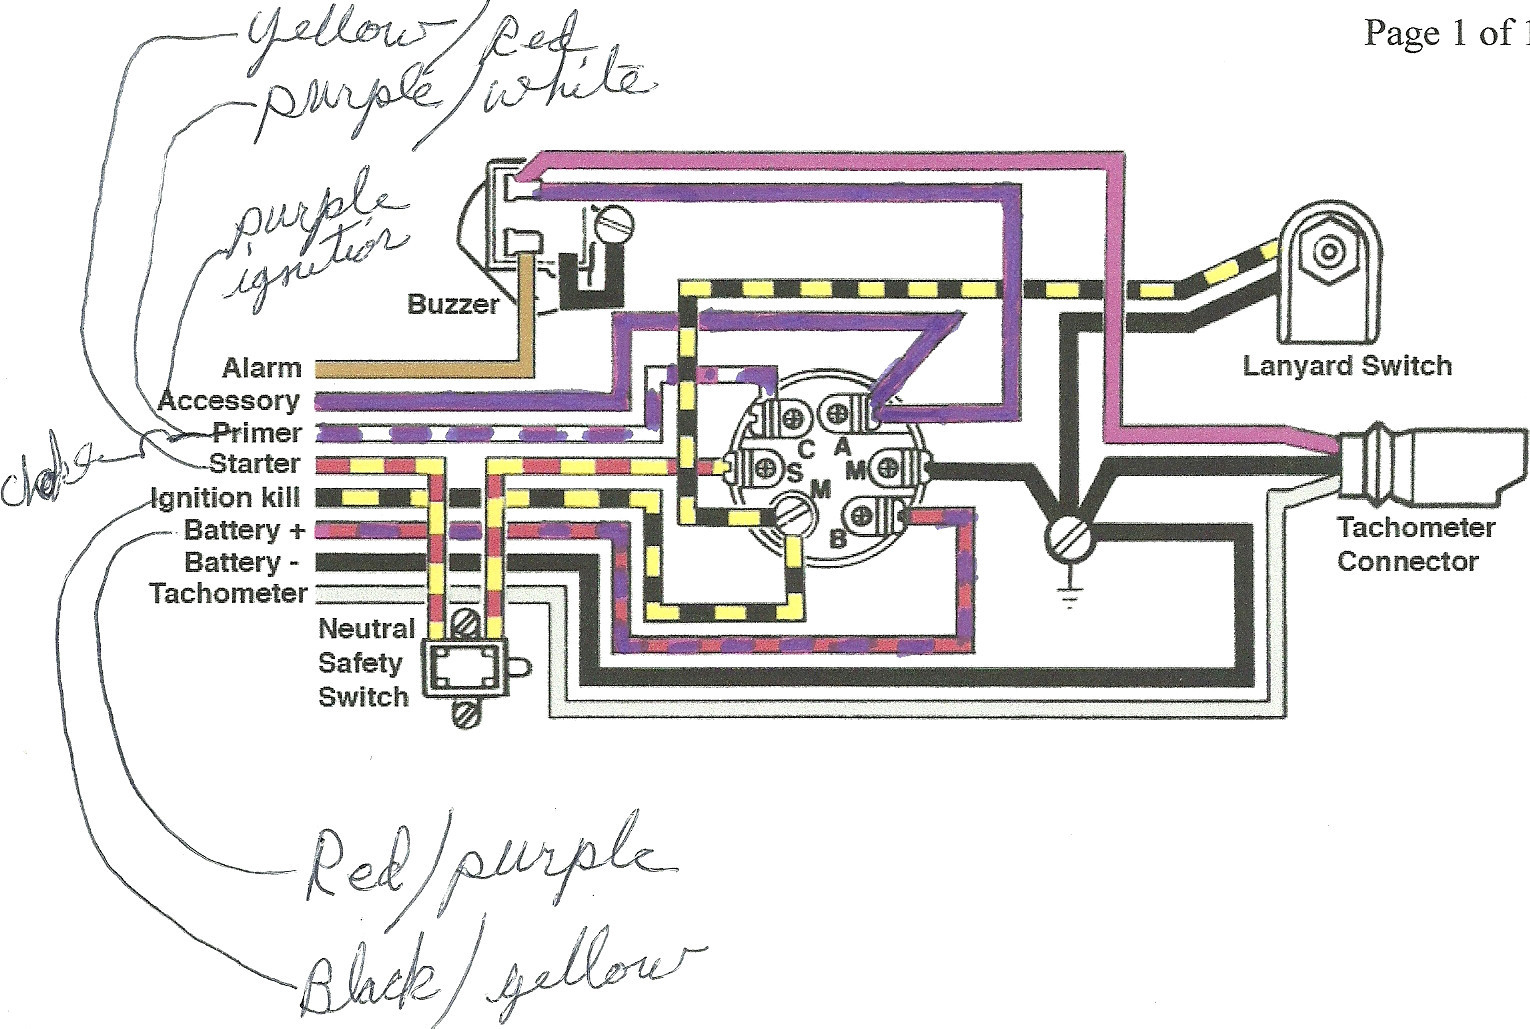 Page 1 of 1
yellow/Red
purple/white
purple
ignition
Buzzer
Alarm
Accessory
Primer
Starter
Ignition kill
Battery +
Battery -
Tachometer
Neutral
Safety
Switch
C
A
S
M
M
B
Lanyard Switch
Tachometer
Connector
Red/purple
Black/yellow